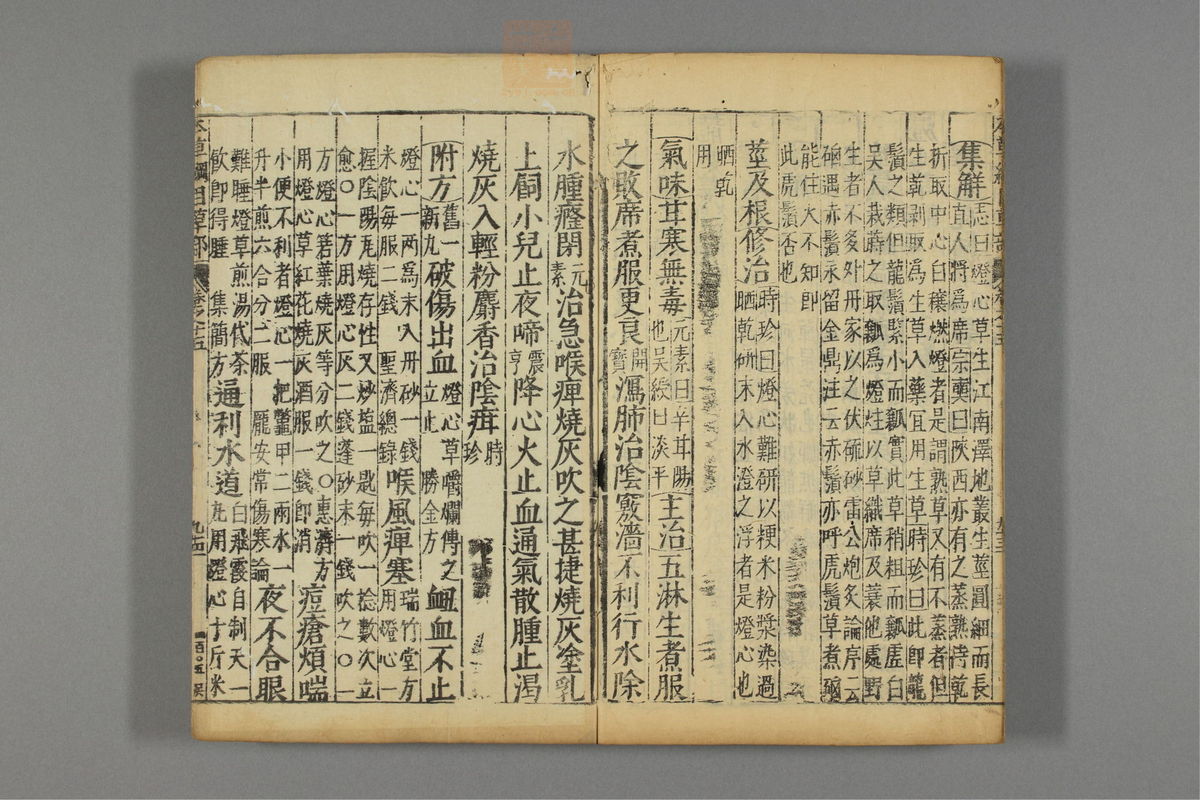 集解志曰燈心草生江南澤地叢生莖圓細而長
直人將為席宗奭曰陝西亦有之蒸熟待乾
折取中心白穰燃燈者是謂熟草又有不蒸者但
生乾剝取為生草入藥宜用生草時珍曰此即龍
鬚之類但龍鬚緊小而瓤實此草稍粗而瓤虛白
吳人栽蒔之取瓤為燈炷以草織席及蓑他處野
生者不多外丹家以之伏硫砂雷公炮炙論序云
硇遇赤鬚永留金鼎注云赤鬚亦呼虎鬚草煮硇
能住火不知即
此虎鬚否也
莖及根修治時珍曰燈心難研以粳米粉漿染過
晒乾研末入水澄之浮者是燈心也
晒乾
用
氣味甘寒無毒元素曰辛甘陽
也吳綬曰淡平主治五淋生煮服
之敗席煮服更良開
寶瀉肺治陰竅濇不利行水除
水腫癃閉元
素治急喉痺燒灰吹之甚捷燒灰塗乳
上飼小兒止夜啼震
亨降心火止血通氣散腫止渴
燒灰入輕粉麝香治陰疳時
珍
附方舊一
新九破傷出血燈心草嚼爛傅之
立止 勝金方衄血不止
燈心一兩為末入丹砂一錢
米飲每服二錢 聖濟總錄喉風痺塞瑞竹堂方
用燈心一
握陰陽瓦燒存性又炒鹽一匙每吹一捻數次立
愈○一方用燈心灰二錢蓬砂末一錢吹之○一
方燈心箬葉燒灰等分吹之○惠濟方
用燈心草紅花燒灰酒服一錢即消痘瘡煩喘
小便不利者燈心一把鼈甲二兩水一
升半煎六合分二服 龐安常傷寒論夜不合眼
難睡燈草煎湯代茶
飲即得睡 集簡方通利水道白飛霞自制天一
丸用燈心十斤米